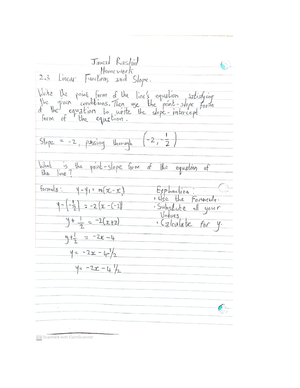 Homework
2.3 Linear Functions and Slope.
Write the point form of the line's equation satisfying
the given conditions. Then use the point-slope form
of the equation to write the slope-intercept
form of the equation.
Slope = -2, passing through (-2, -1/2)
What is the point-slope form of the equation of
the line?
Formula: y-y₁ = m(x-x₁) Explanation:
• Use the Formula.
y-(-1/2) = -2(x-(-2)) • Substitute all your
Values.
y+1/2 = -2(x+2) • Calculate for y.
y+1/2 = -2x-4
y = -2x-4 1/2
y = -2x-4 1/2
Scanned with CamScanner